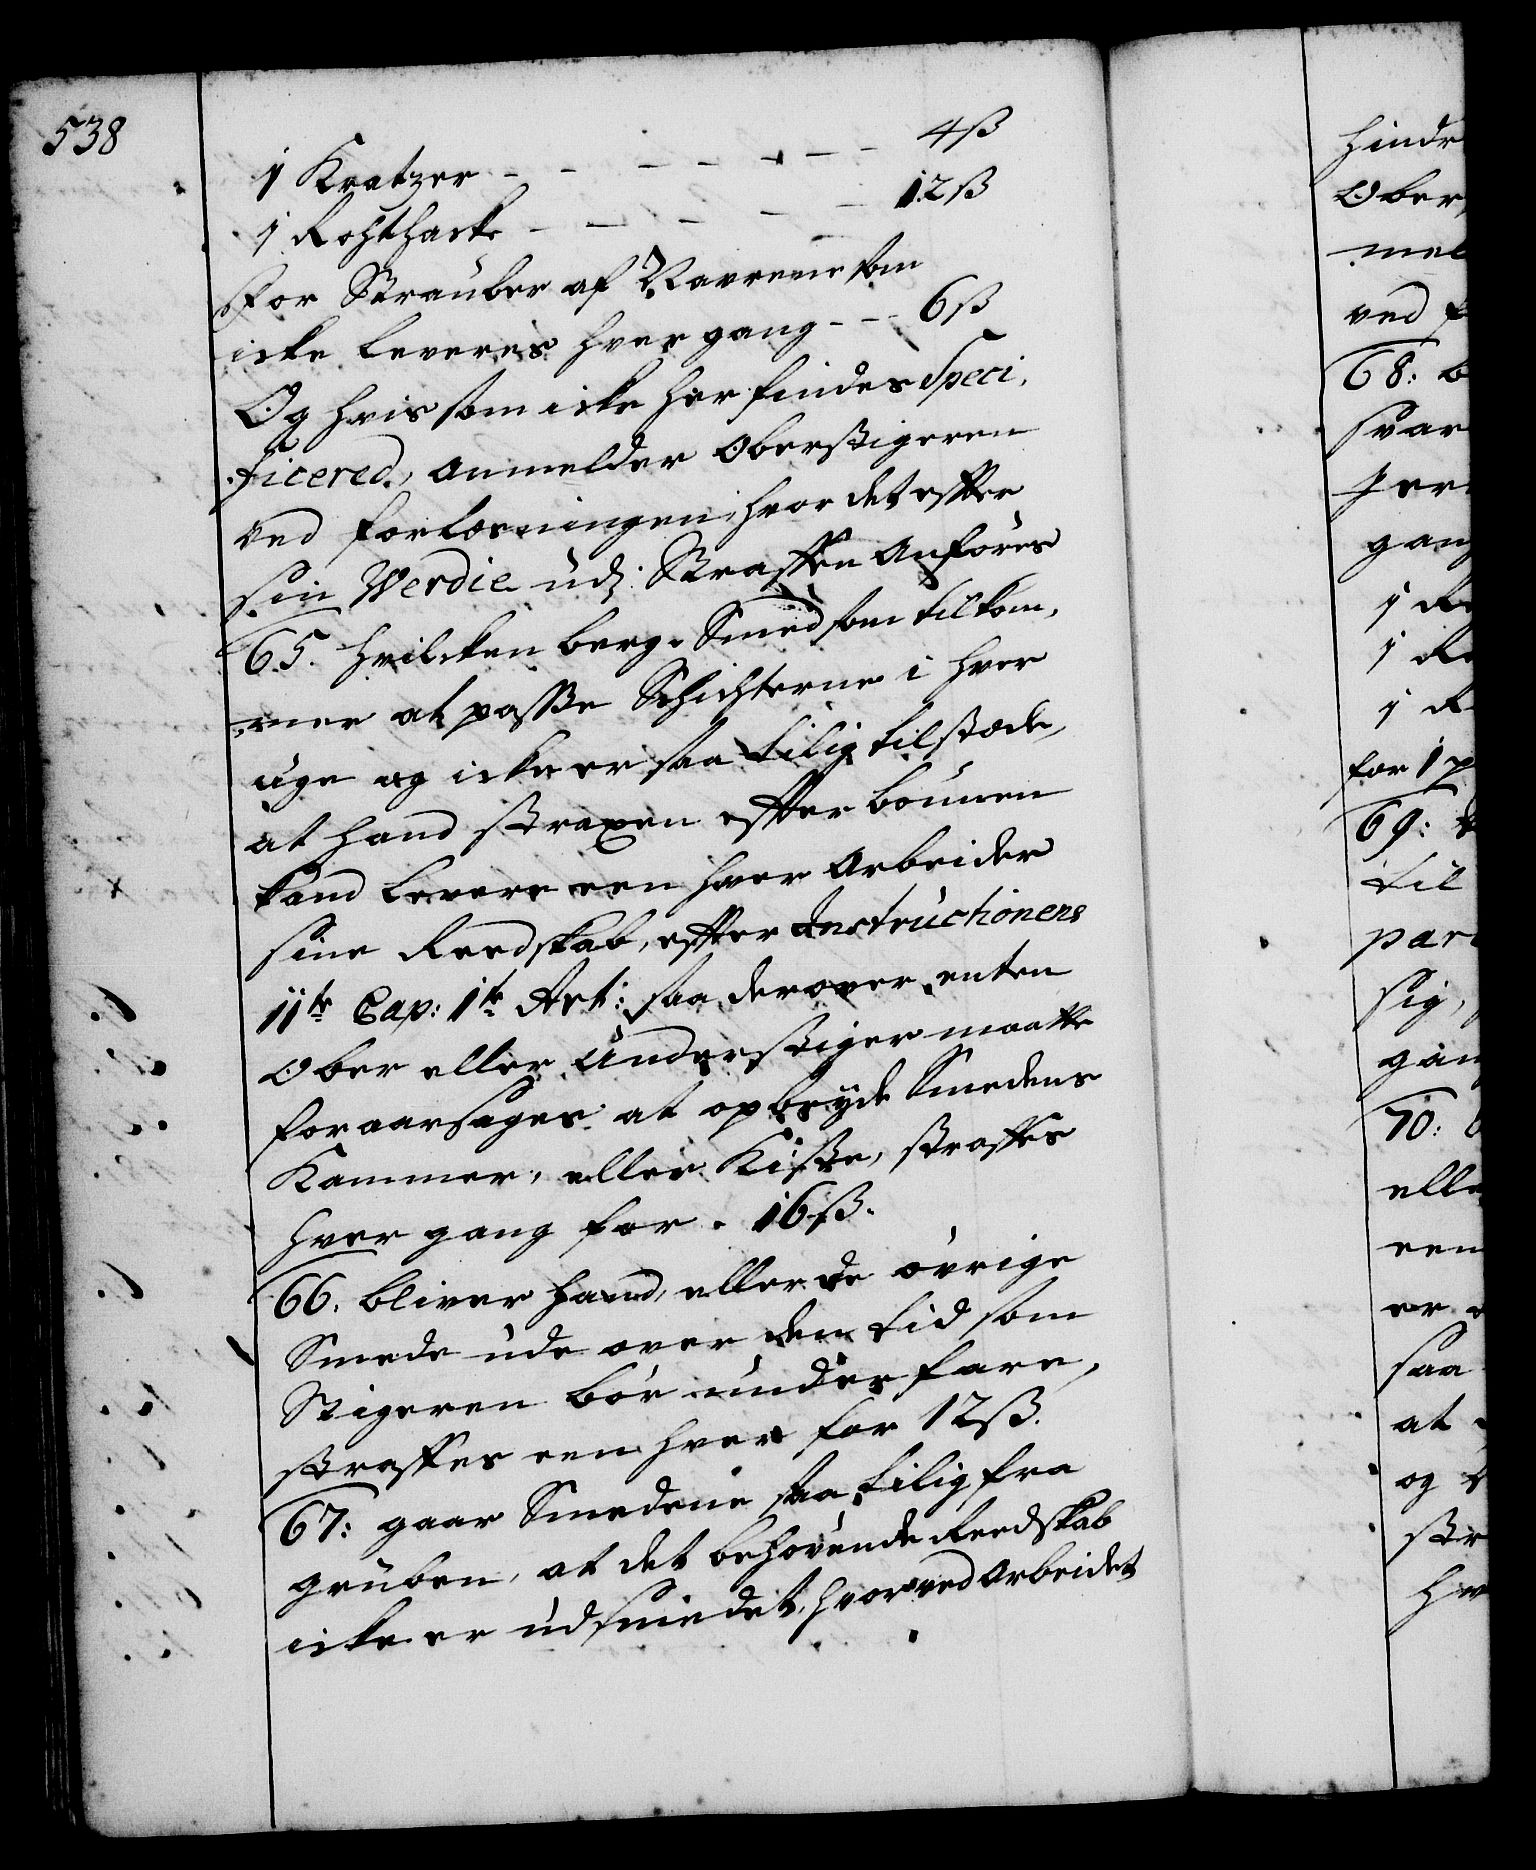 538
1 Kratzer - - - - - - - 4ß
1 Rohthacke - - - - - - 12ß
for Strauber af Navrene som
icke leveres hver gang - - - 6ß
Og hvis som icke her findes Speci,
ficered, Anmelder Oberstigeren
ved forlæsningen, hvor det effter
sin Werdie udj Straffen Anføres
65. hvilcken berg-Smed som tilkom,
mer at passe Schichterne i hver
uge og icke er saa tilig tilstæde,
at hand straxen effter bønnen
kand levere een hver Arbeider
sine Reedskab, effter Instructionens
11te Cap: 1te Art: saa derover enten
Ober eller Understiger maatte
foraarsages at opbryde Smedens
Kammer, eller Kiste, straffes
hver gang for. 16ß.
66. bliver hand, eller de øvrige
Smede ude over den tid som
Stigeren bør underfare,
straffes een hver for 12ß.
67: gaar Smedene saa tilig fra
gruben, at det behøvende Reedskab
icke er udsmedet, hvorved Arbeidet
hindr
Ober
mel
ved f
68: b
svar
Jer
gang
1 R
1 R
1 R
for 1 p
69:
til
par
sig,
gan
70:
elle
een
er
saa
at
og
str
hv